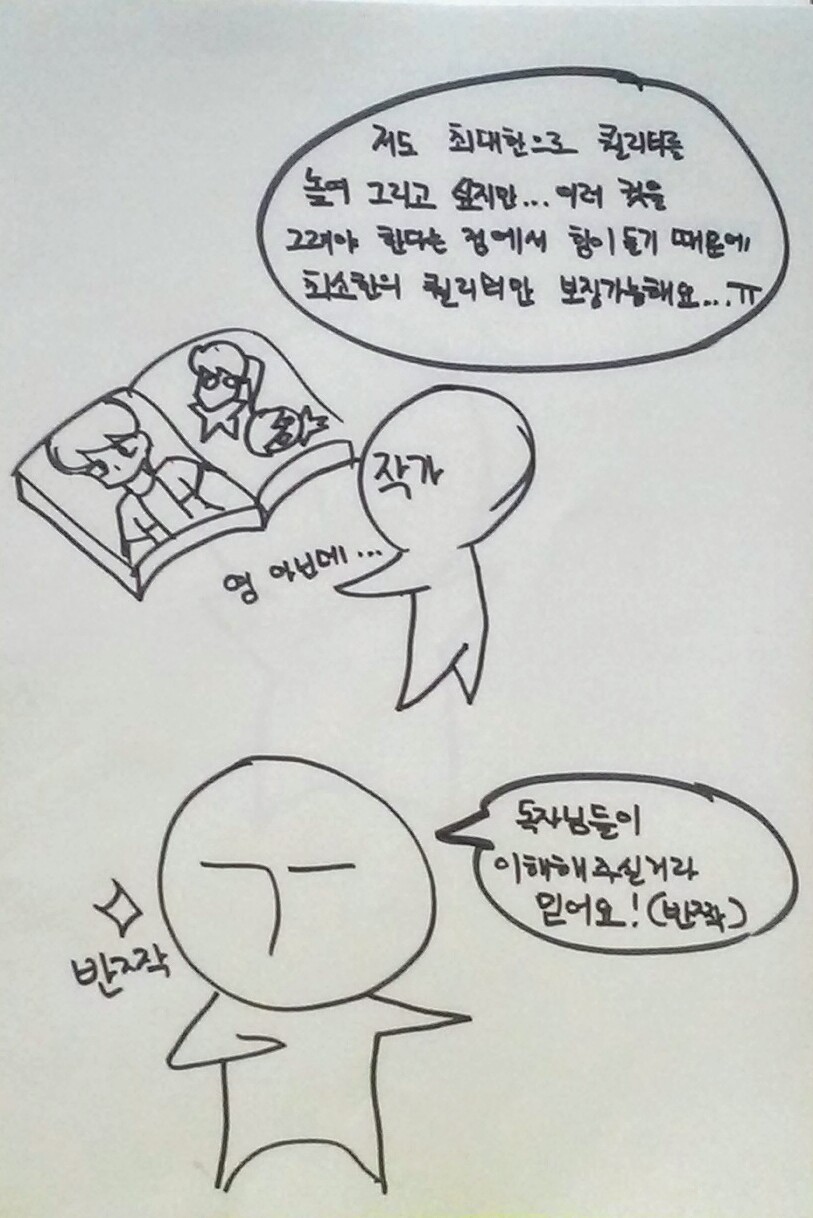 저도 최대한으로 퀄리티를
높여 그리고 싶지만... 여러 컷을
그려야 한다는 점에서 힘이 들기 때문에
최소한의 퀄리티만 보장가능해요...ㅠ
작가
영 아닌데...
독자님들이
이해해주실거라
믿어요! (반짝)
반지작